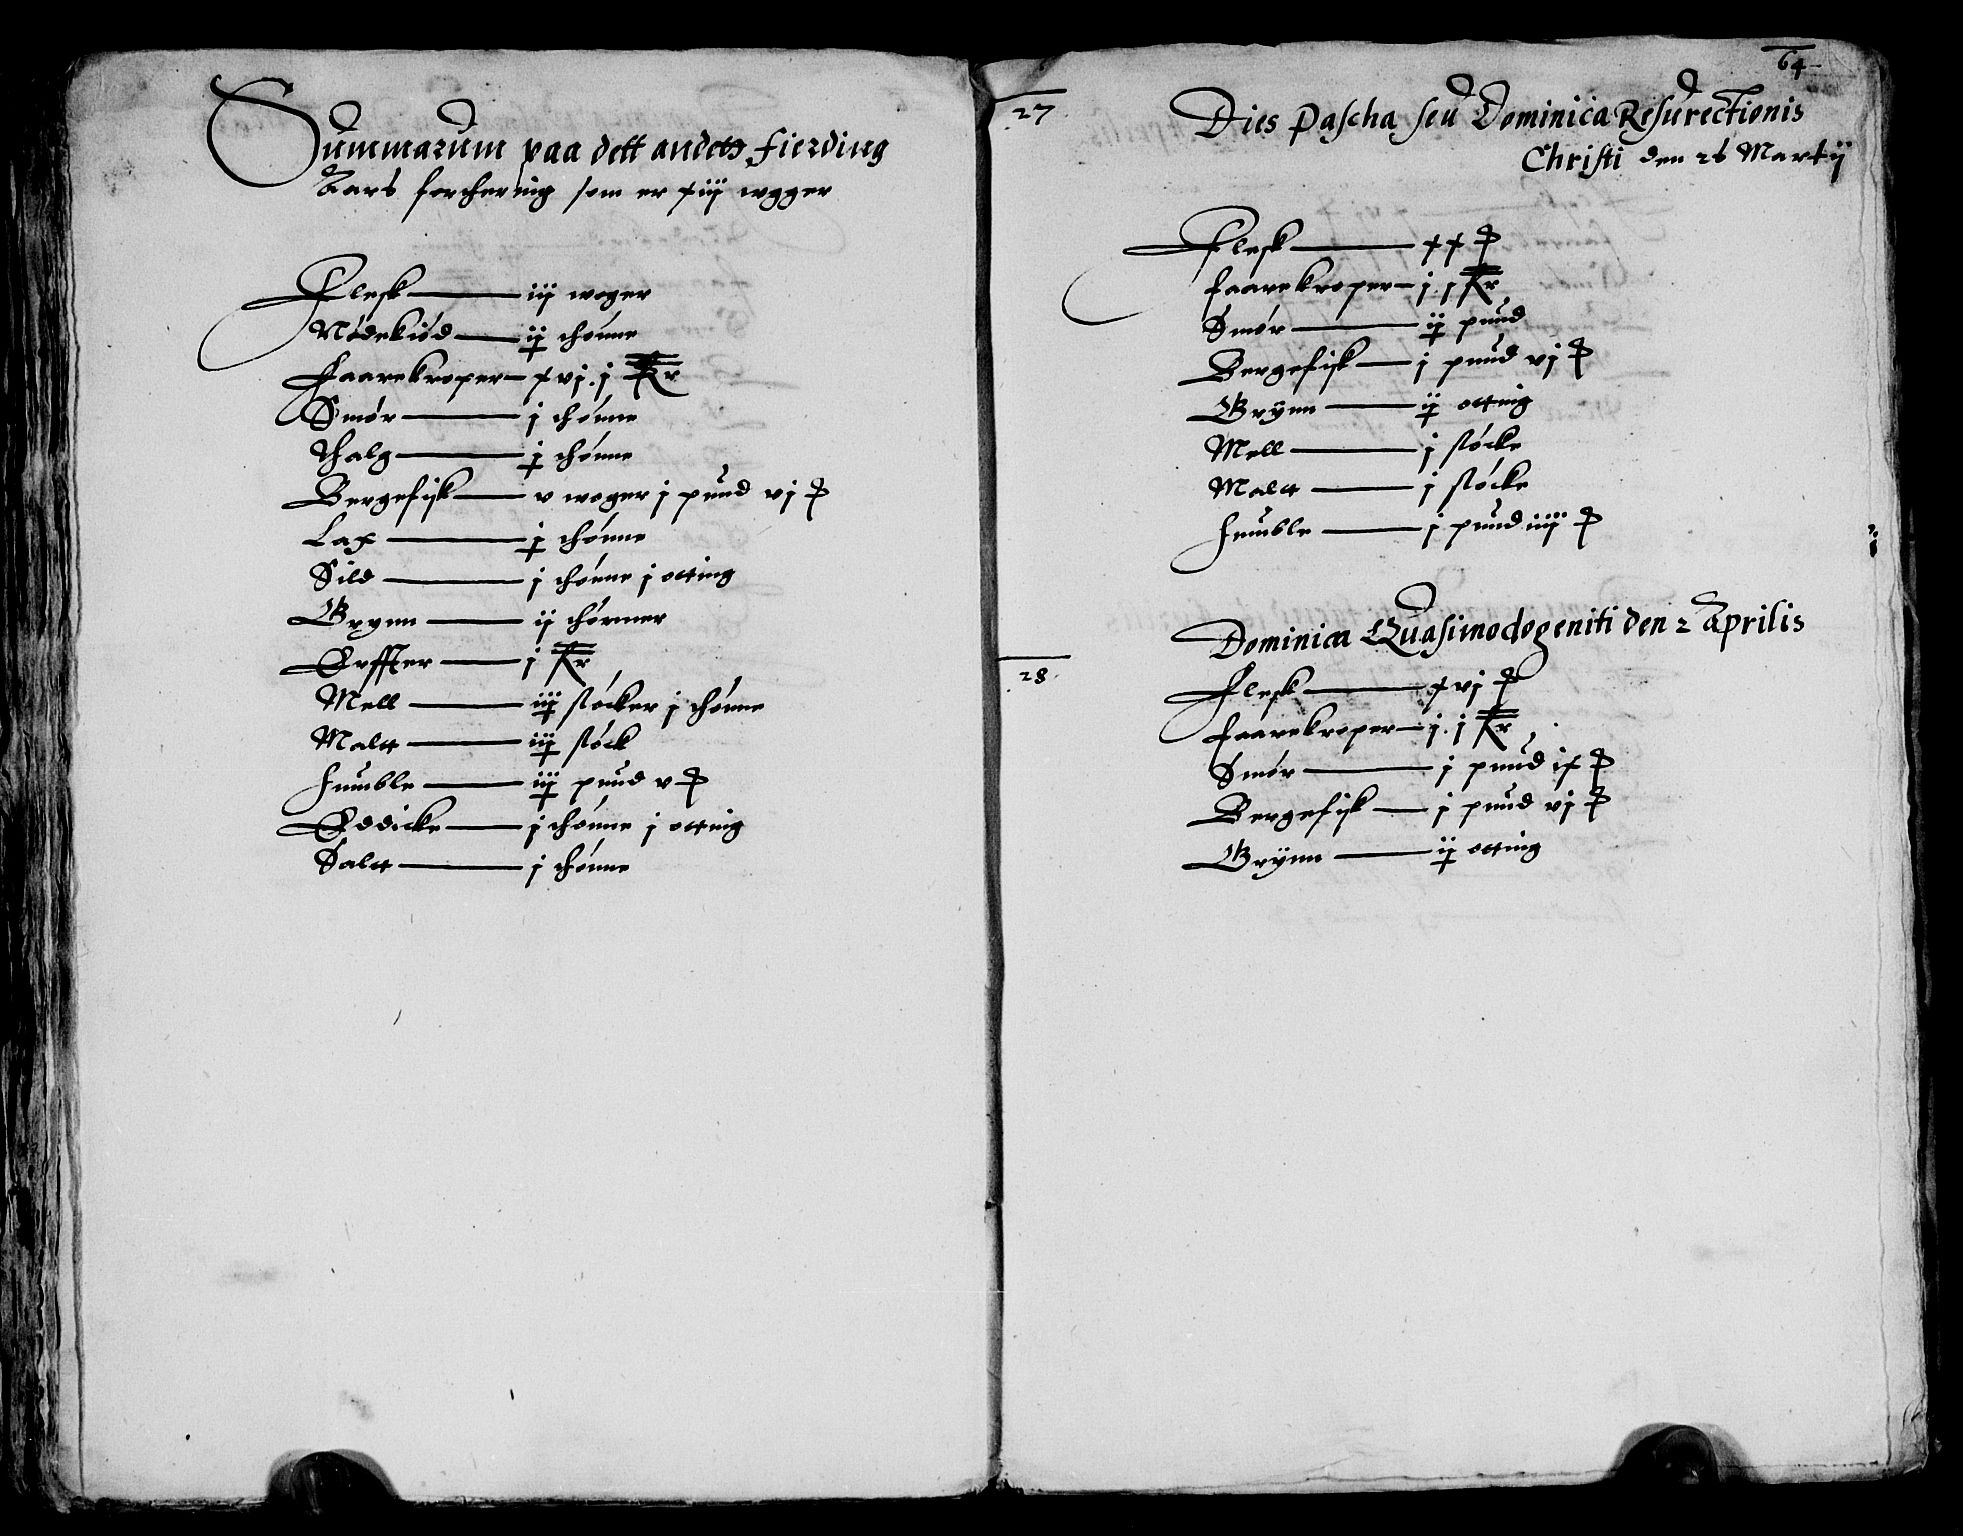 Summarum paa dett andett fierding
Aars forthering som er xiij wgger
Flesk — iij woger
Nødekiød — ij thønne
Faarekroper — xvj. j Kr
Smør — j thønne
Thalg — j thønne
Bergefisk — v woger j pund vj ℔
Lax — j thønne
Sild — j thønne j otting
Grynn — ij thønner
Erffter — j Kr
Mell — iij støcker j thønne
Maltt — iij støck
Humble — iij pund v ℔
Eddicke — j thønne j otting
Saltt — j thønne
64
27
Dies Pascha seu Dominica Resurectionis
Christi den 26 Martij
Flesk — xx ℔
Faarekroper — j. j Kr
Smør — ij pund
Bergefisk — j pund vj ℔
Grÿnn — ij otting
Mell — j støcke
Maltt — j støcke
Humble — j pund iiij ℔
28
Dominica Quasimodogeniti den 2 Aprilis
Flesk — xvj ℔
Faarekroper — j. j Kr
Smør — j pund ix ℔
Bergefisk — j pund vj ℔
Grÿnn — ij otting